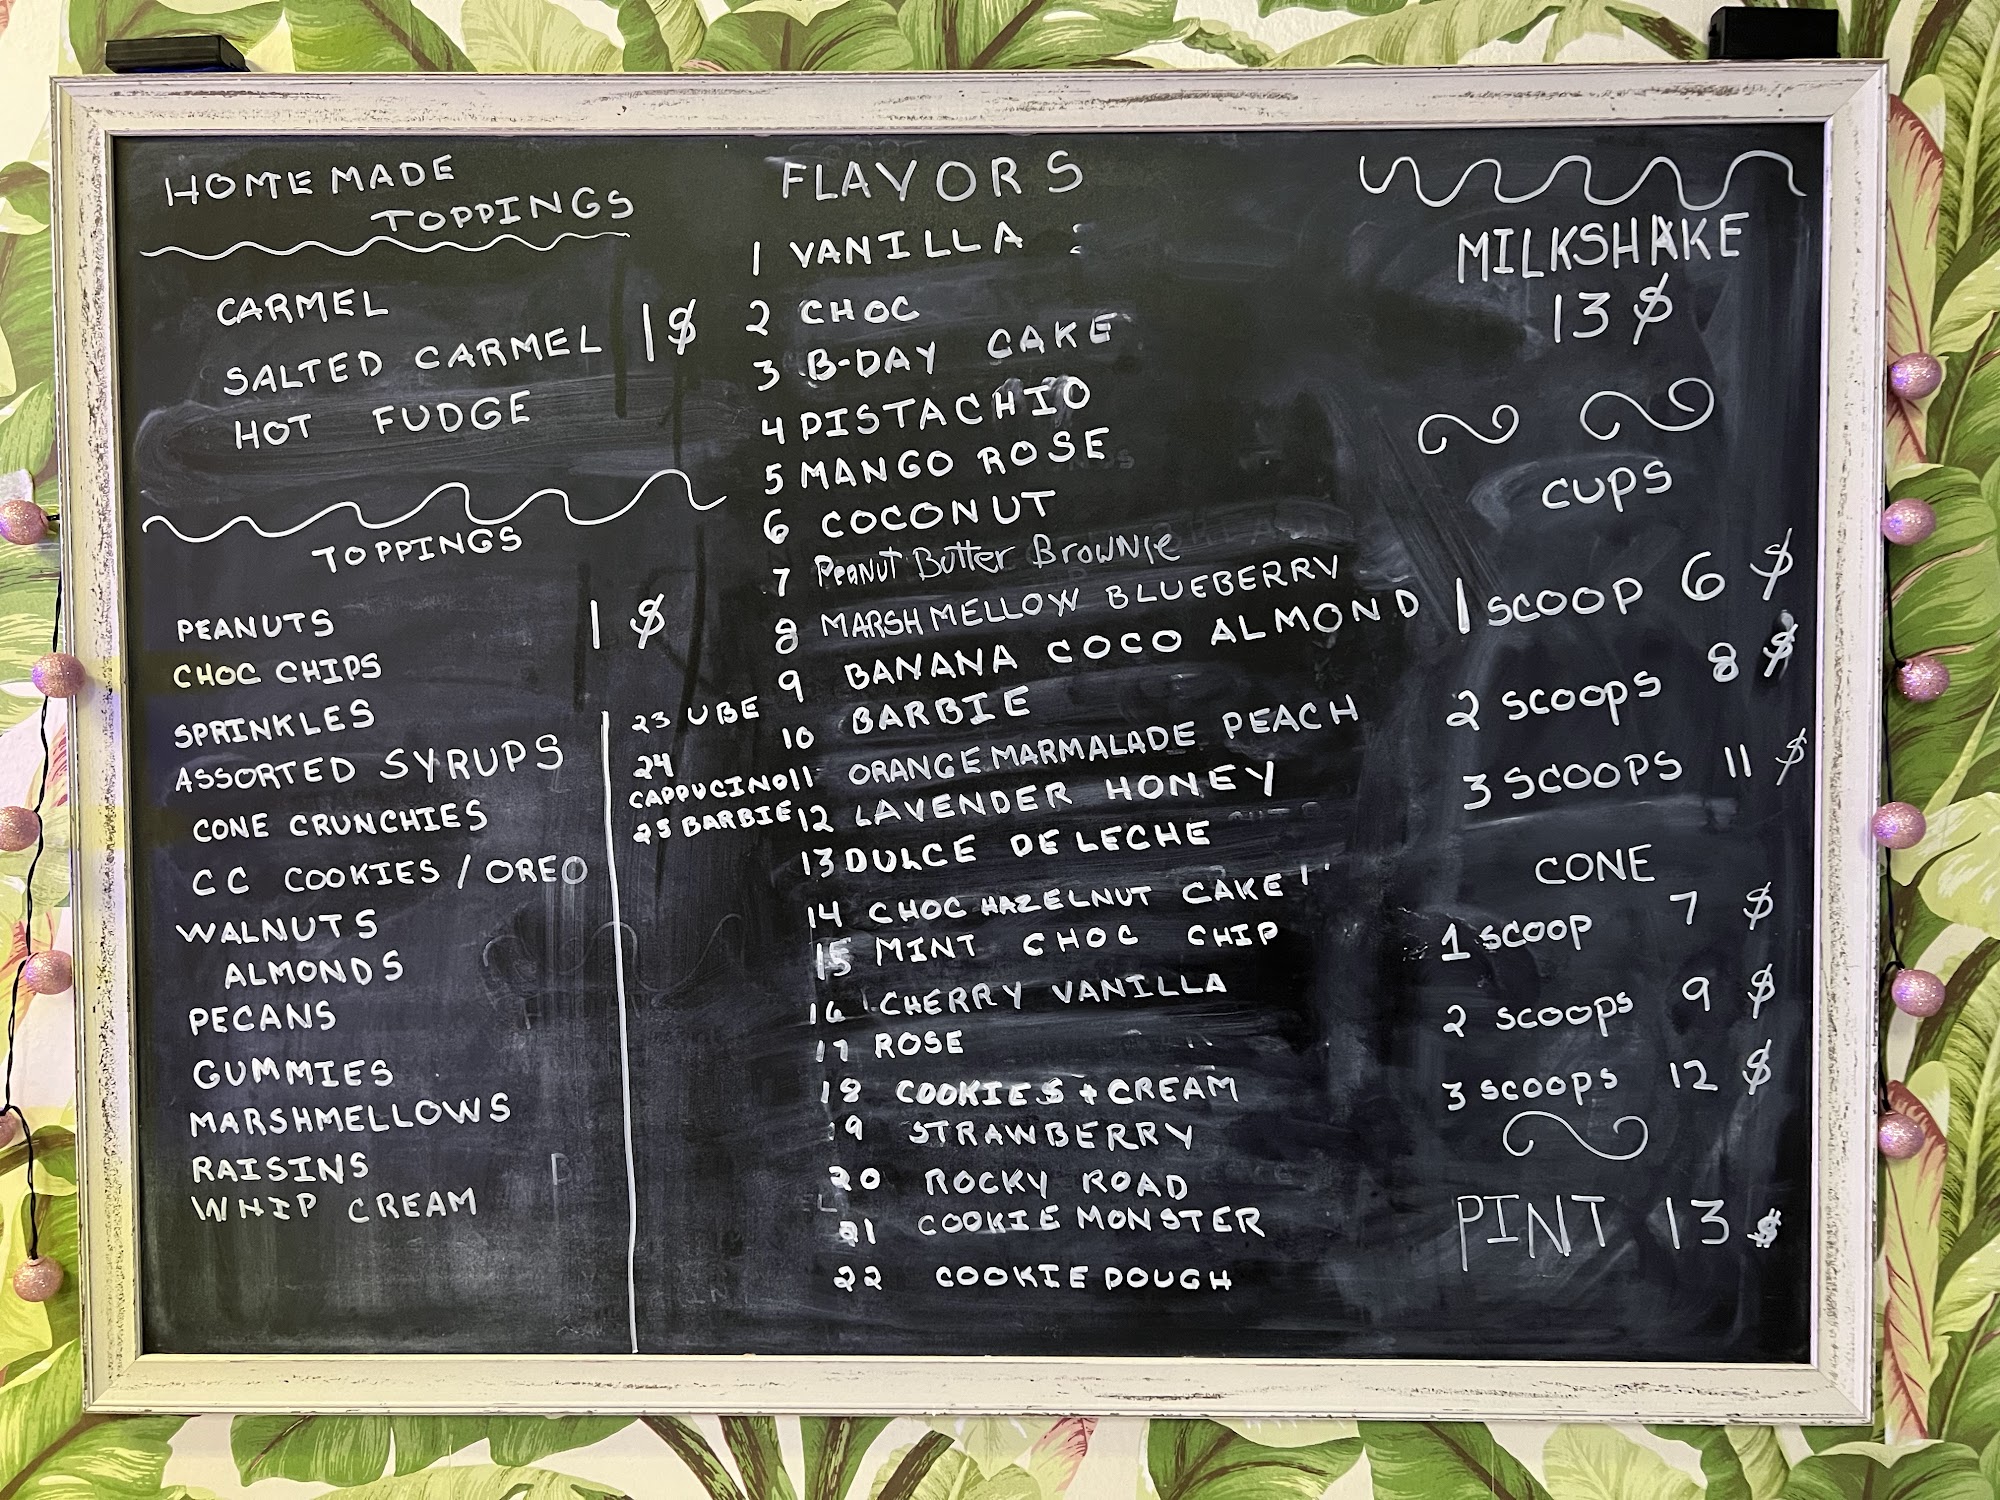 HOMEMADE
TOPPINGS
CARMEL
SALTED CARMEL 1$
HOT FUDGE
TOPPINGS
PEANUTS 1 $
CHOC CHIPS
SPRINKLES
ASSORTED SYRUPS
CONE CRUNCHIES
CC COOKIES / OREO
WALNUTS
ALMONDS
PECANS
GUMMIES
MARSHMELLOWS
RAISINS
WHIP CREAM
FLAVORS
1 VANILLA
2 CHOC
3 B-DAY CAKE
4 PISTACHIO
5 MANGO ROSE
6 COCONUT
7 Peanut Butter Brownie
8 MARSHMELLOW BLUEBERRY
9 BANANA COCO ALMOND
10 BARBIE
11 ORANGE MARMALADE PEACH
12 LAVENDER HONEY
13 DULCE DE LECHE
14 CHOC HAZELNUT CAKE
15 MINT CHOC CHIP
16 CHERRY VANILLA
17 ROSE
18 COOKIES + CREAM
19 STRAWBERRY
20 ROCKY ROAD
21 COOKIE MONSTER
22 COOKIE DOUGH
23 UBE
24
CAPPUCINO
25 BARBIE
MILKSHAKE
13 $
CUPS
1 SCOOP 6 $
2 SCOOPS 8 $
3 SCOOPS 11 $
CONE
1 SCOOP 7 $
2 SCOOPS 9 $
3 SCOOPS 12 $
PINT 13 $